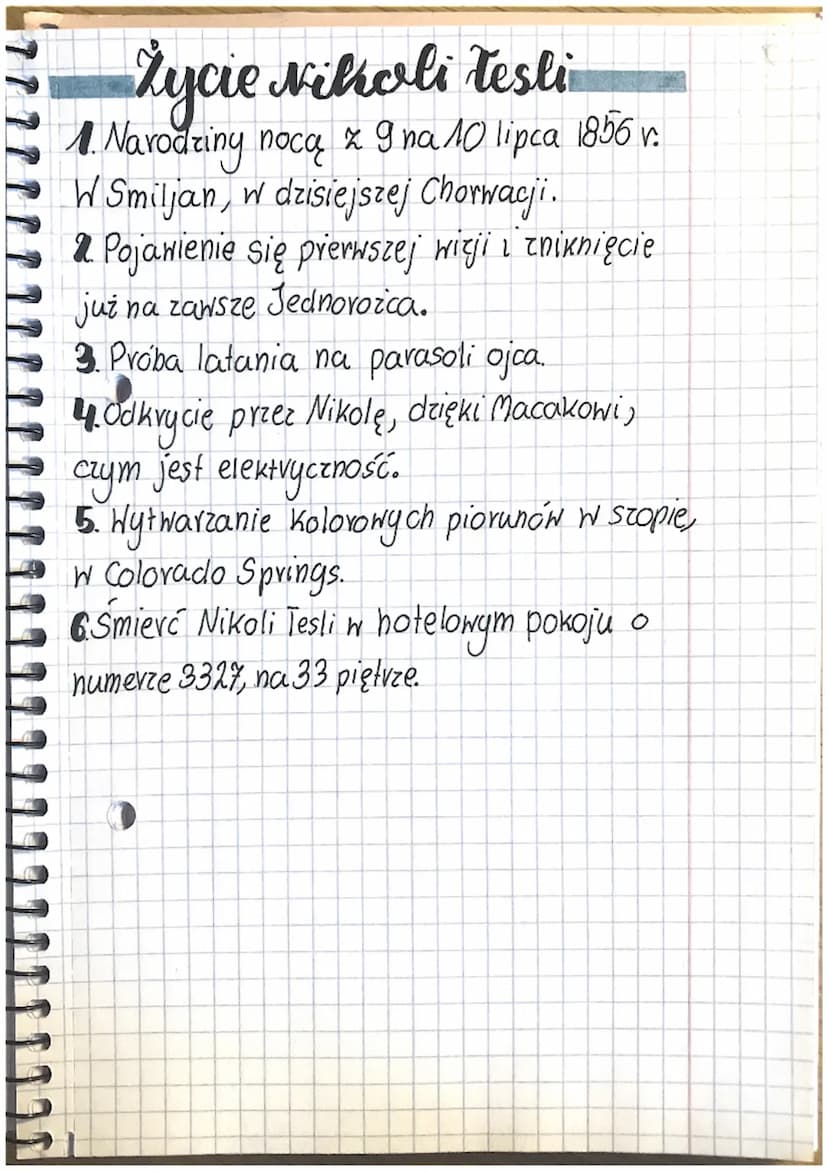 Życie Nikoli Tesli
1. Narodziny nocą z 9 na 10 lipca 1856 r.
W Smiljan, w dzisiejszej Chorwacji.
2. Pojawienie się pierwszej wizji i zniknięcie
już na zawsze Jednorożca.
3. Próba latania na parasoli ojca.
4. Odkrycie przez Nikolę, dzięki Macakowi,
czym jest elektryczność.
5. Wytwarzanie kolorowych piorunów w szopie,
w Colorado Springs.
6. Śmierć Nikoli Tesli w hotelowym pokoju o
numerze 3327, na 33 piętrze.